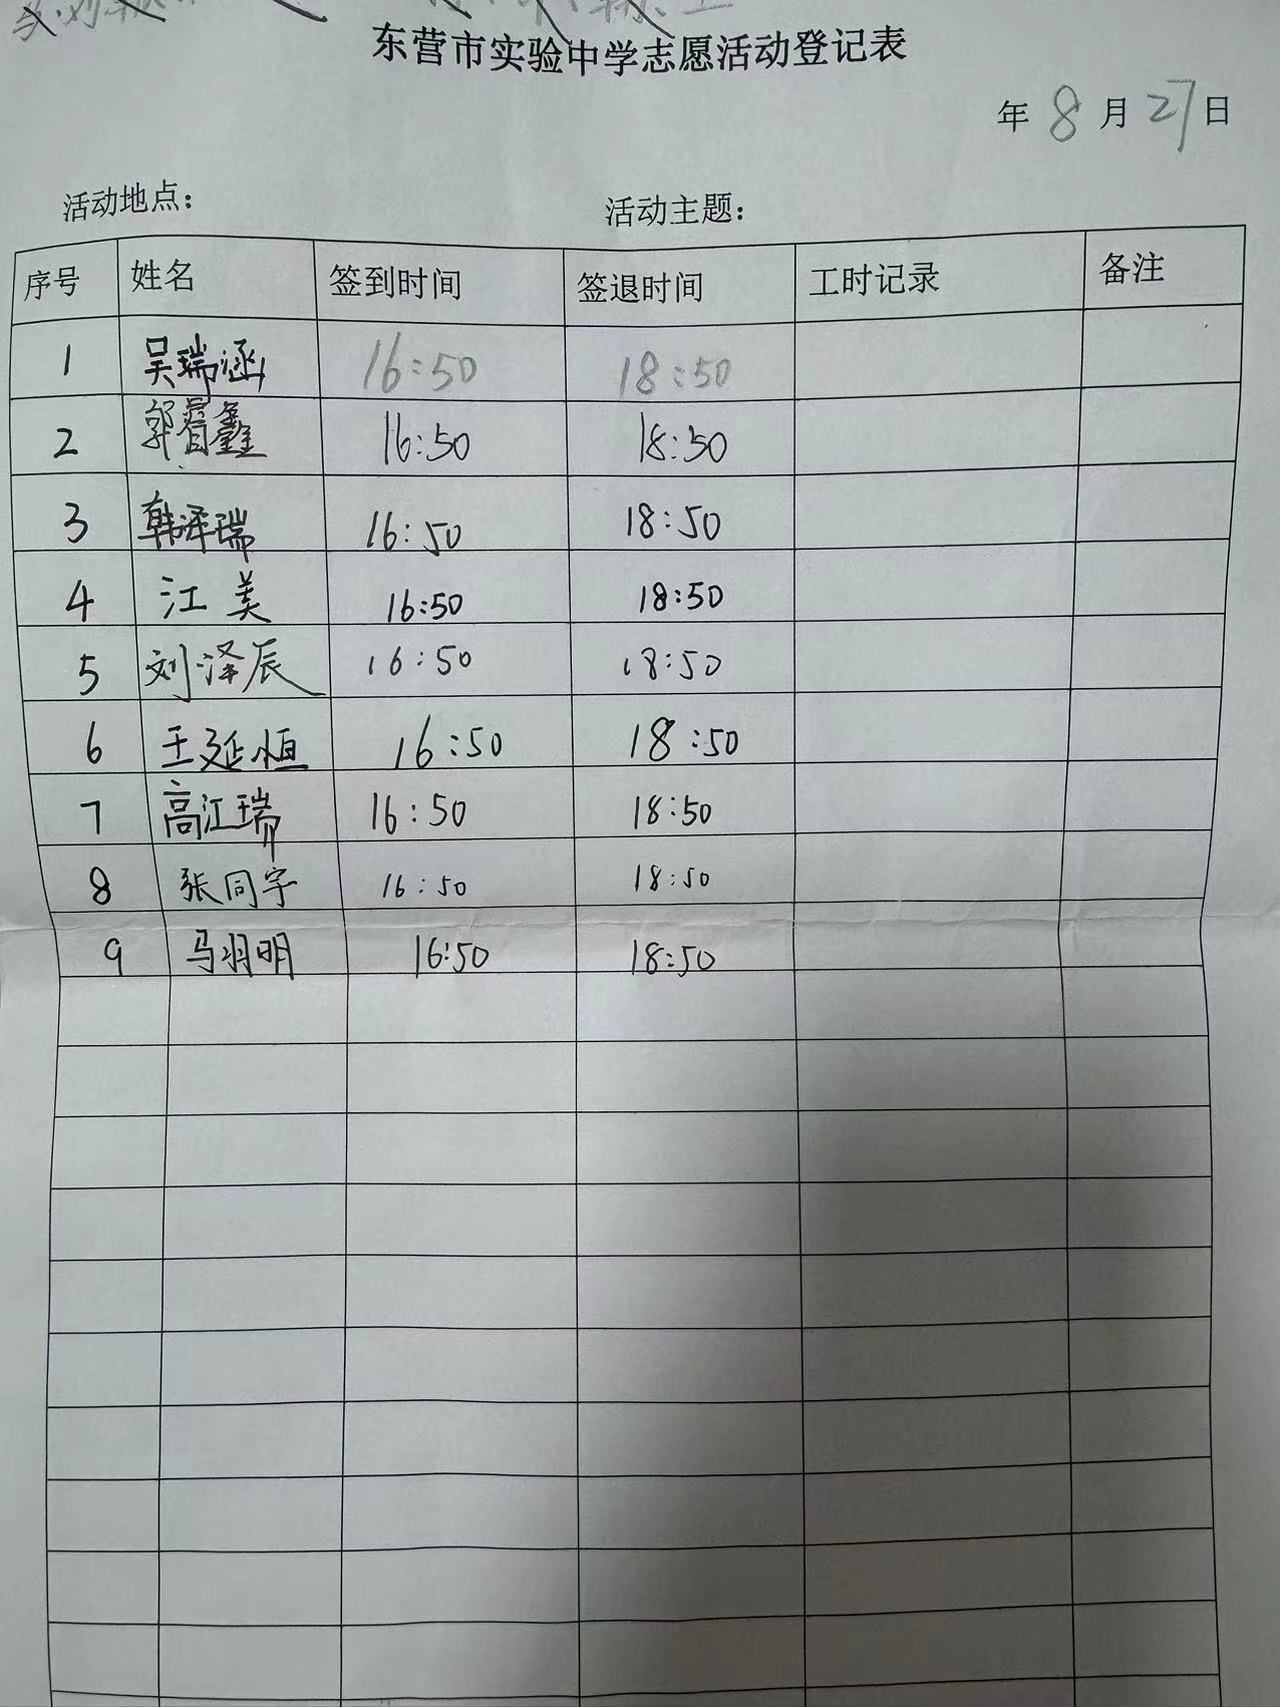 东营市实验中学志愿活动登记表
年 8 月 27 日
活动地点： 活动主题：
序号 姓名 签到时间 签退时间 工时记录 备注
1 吴瑞涵 16:50 18:50
2 郭晉鑫 16:50 18:50
3 韩泽瑞 16:50 18:50
4 江美 16:50 18:50
5 刘泽辰 16:50 18:50
6 王延恒 16:50 18:50
7 高江瑞 16:50 18:50
8 张同宇 16:50 18:50
9 马羽明 16:50 18:50